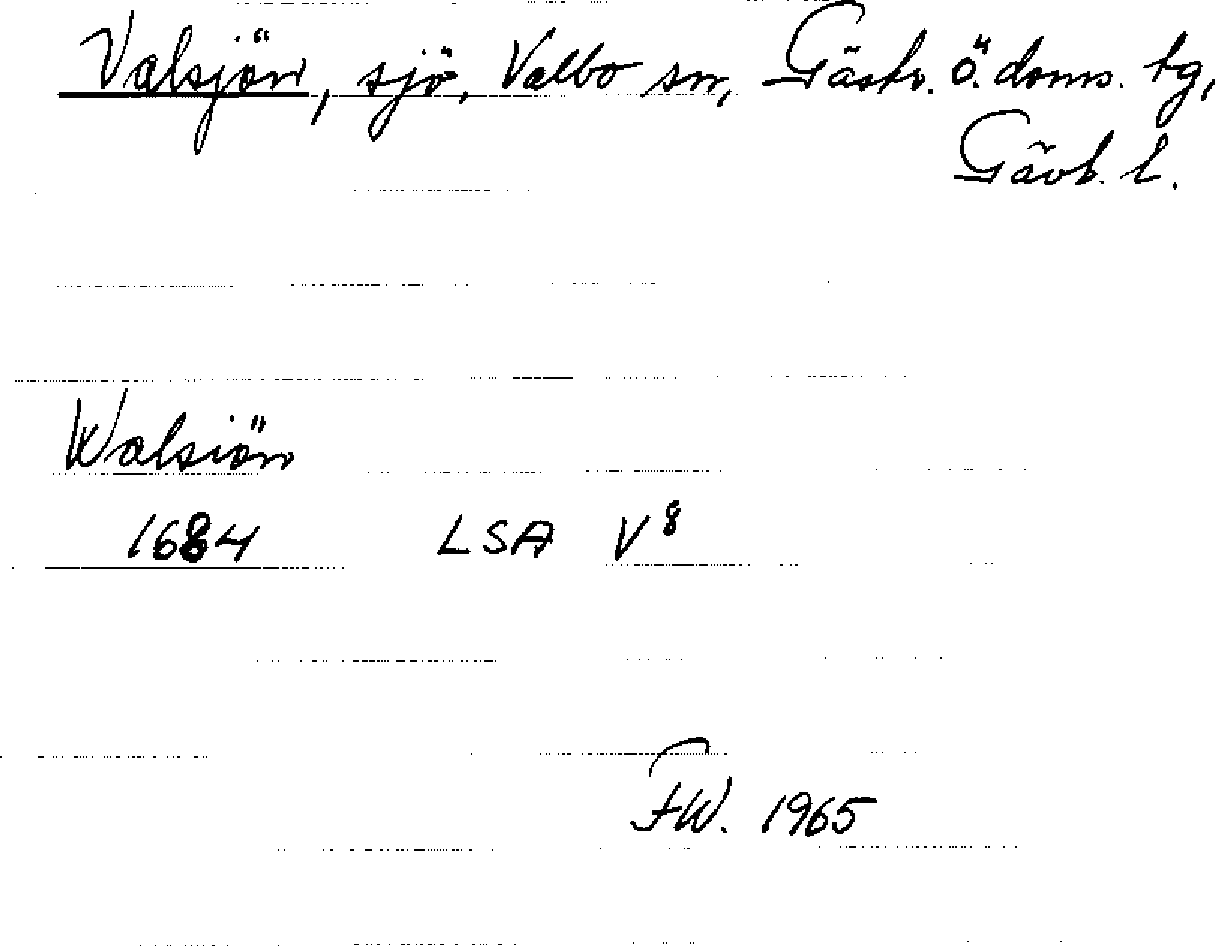 Valsjön, sjö, Valbo sn, Gästr. ö. doms. tg,
Gävb. l.
Walsiön
1684 LSA V⁸
FW. 1965